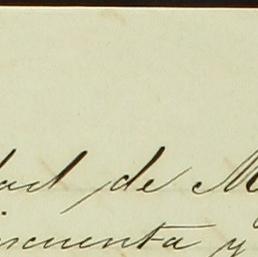 dad de M
incuenta y